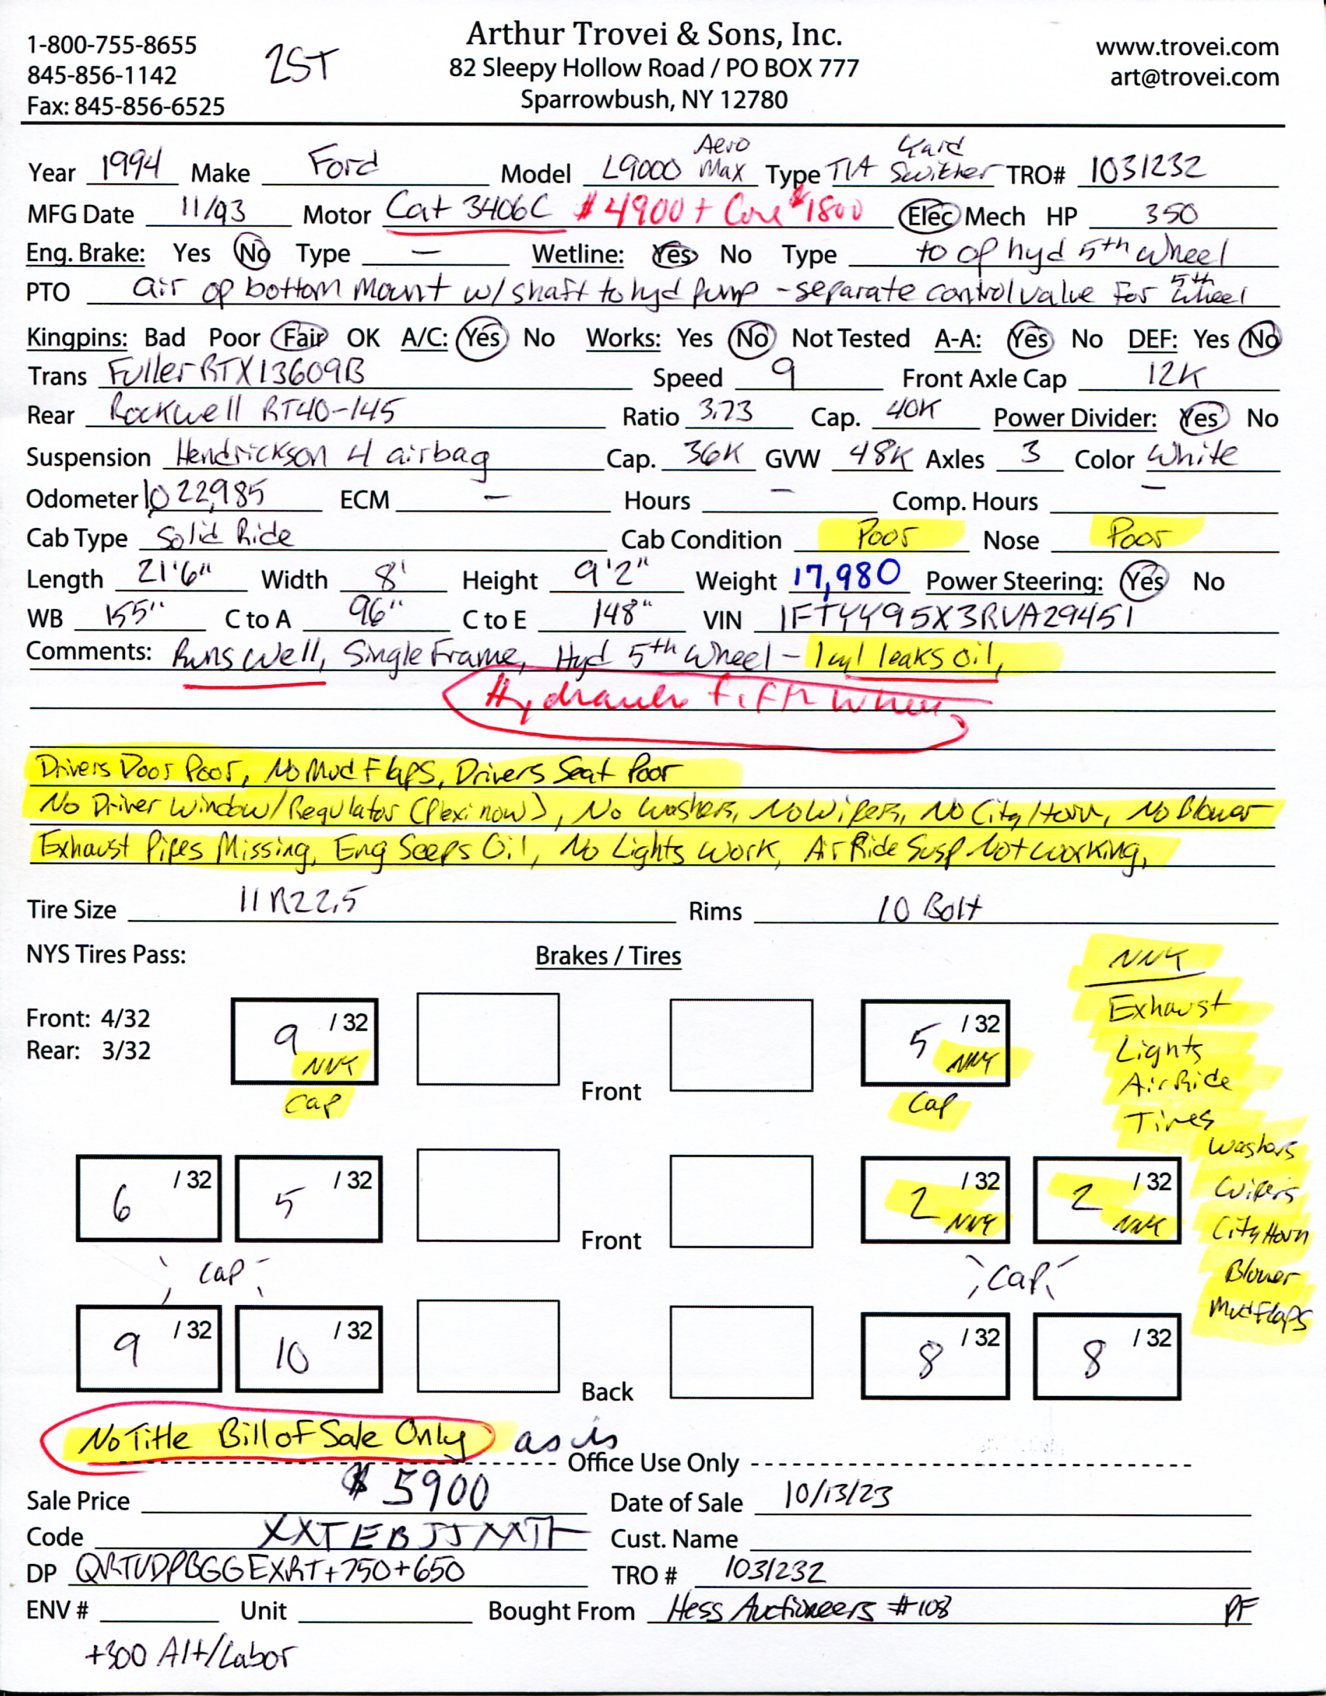 1-800-755-8655
845-856-1142
Fax: 845-856-6525
2ST
Arthur Trovei & Sons, Inc.
82 Sleepy Hollow Road / PO BOX 777
Sparrowbush, NY 12780
www.trovei.com
art@trovei.com
Year 1994 Make Ford Model L9000 Aero Max Type T/A Yard Switcher TRO# 1031232
MFG Date 11/93 Motor Cat 3406C $4900 + Core $1800 Elec Mech HP 350
Eng. Brake: Yes No Type — Wetline: Yes No Type to op hyd 5th wheel
PTO air op bottom mount w/shaft to hyd pump - separate control valve for 5th wheel
Kingpins: Bad Poor Fair OK A/C: Yes No Works: Yes No Not Tested A-A: Yes No DEF: Yes No
Trans Fuller RTX13609B Speed 9 Front Axle Cap 12K
Rear Rockwell RT40-145 Ratio 3.73 Cap. 40K Power Divider: Yes No
Suspension Hendrickson 4 airbag Cap. 36K GVW 48K Axles 3 Color White
Odometer 1,022,985 ECM — Hours — Comp. Hours —
Cab Type Solid Ride Cab Condition Poor Nose Poor
Length 21'6" Width 8' Height 9'2" Weight 17,980 Power Steering: Yes No
WB 155" C to A 96" C to E 148" VIN 1FTYY95X3RVA29451
Comments: Runs Well, Single Frame, Hyd 5th Wheel - 1 cyl leaks oil,
Hydraulic Fifth Wheel
Drivers Door Poor, No Mud Flaps, Drivers Seat Poor
No Driver Window/Regulator (Plexi now), No Washers, No Wipers, No City Horn, No Blower
Exhaust Pipes Missing, Eng Seeps Oil, No Lights Work, Air Ride Susp Not working,
Tire Size 11R22.5 Rims 10 Bolt
NYS Tires Pass: Brakes / Tires
NNY
Exhaust
Lights
Air Ride
Tires
Washers
Wipers
City Horn
Blower
Mud Flaps
Front: 4/32
Rear: 3/32
9 /32 NNY 5 /32 NNY
Front
Cap Cap
6 /32 5 /32 2 /32 NNY 2 /32 NNY
Front
Cap Cap
9 /32 10 /32 8 /32 8 /32
Back
No Title Bill of Sale Only as is
Office Use Only
Sale Price $5900 Date of Sale 10/13/23
Code XXTEBJJMTT Cust. Name
DP QRTUDPBGGEXRT+750+650 TRO # 1031232
ENV # Unit Bought From Hess Auctioneers #108 PF
+300 Alt/Labor